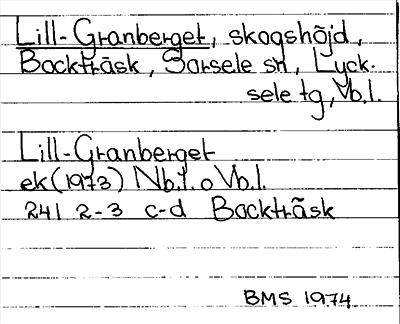 Lill-Granberget, skogshöjd,
Bockträsk, Sorsele sn, Lyck-
sele tg, Vb.l.
Lill-Granberget
ek (1973) Nb.l. o Vb.l.
24I 2-3 c-d Bockträsk
BMS 1974